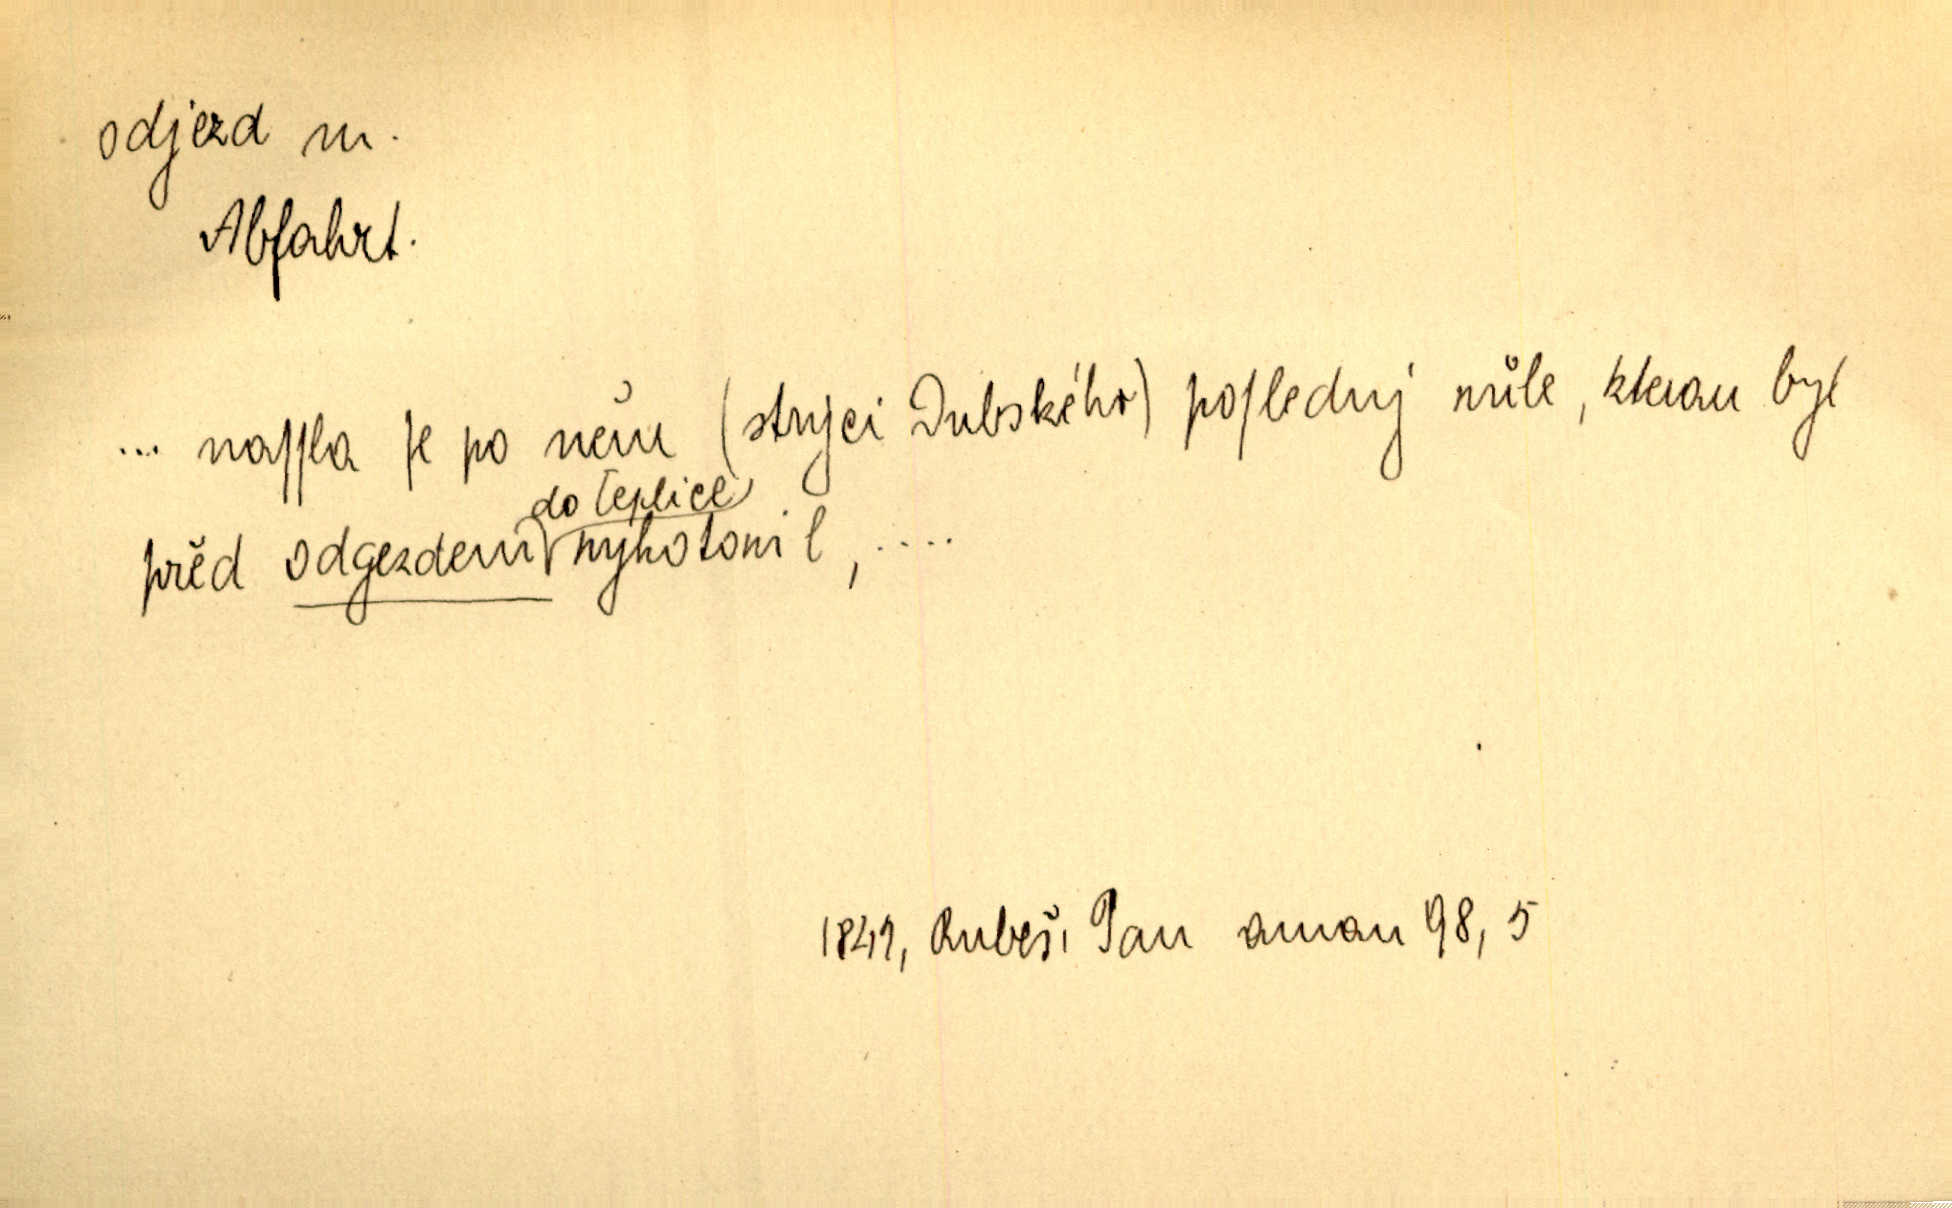 odjezd m.
Abfahrt.
... naſſla ſe po něm (strýci Dubského) poſlednj wůle, kterau byl
před odgezdem do Teplice wyhotowil, ....
1842, Rubeš, Pan aman 98, 5